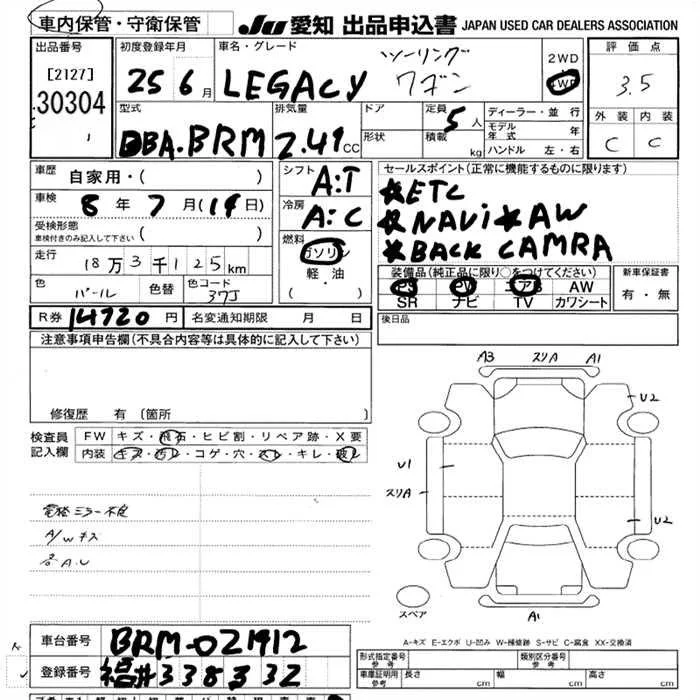 車内保管・守衛保管
JU 愛知 出品申込書 JAPAN USED CAR DEALERS ASSOCIATION
出品番号
[2127]
30304
初度登録年月
25 6月
車名・グレード
LEGACY ツーリング
ワゴン
2WD
4WD
評価点
3.5
外装 内装
C C
型式
DBA.BRM
排気量
2.49 CC
ドア
形状
定員 5人
積載 kg
ディーラー・並行
モデル年式 年
ハンドル 左・右
車歴 自家用・( )
車検 8年 7月(19日)
受検形態
車検付きのみ記入して下さい ( )
走行 18万3千125km
色 パール 色替 色コード 37J
シフト A:T
冷房 A:C
燃料
ガソリン
軽・油
( )
セールスポイント(正常に機能するものに限ります)
★ETC
★NAVi★AW
★BACK CAMRA
装備品(純正品に限り○をつけてください)
PS PW エアB AW
SR ナビ TV カワシート
新車保証書
有・無
R券 14720円 名変通知期限 月 日
後日品
注意事項申告欄(不具合内容等は具体的に記入して下さい)
修復歴 有(箇所 )
検査員
記入欄
FW キズ・飛石・ヒビ割・リペア跡・X要
内装 キズ・汚レ・コゲ・穴・スレ・キレ・破レ
電格ミラー不良
A/Wキズ
各A.U
A3 スリA A1
U2
U1
スリA
U2
A1
スペア
A-キズ E-エクボ U-凹み W-補修跡 S-サビ C-腐食 XX-交換済
車台番号 BRM-021912
登録番号 福井 338 す 32
形式指定番号
参考
類別区分番号
参考
車庫証明用
参考
長さ cm 幅 cm 高さ cm